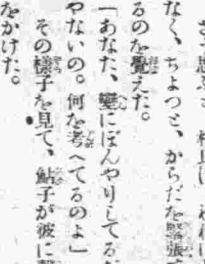 なく、ちょつと、からだを緊張
るのを覺えた。
「あなた、變にぼんやりしてる
やないの。何を考へてるのよ」
その樣子を見て、鮎子が彼に
をかけた。